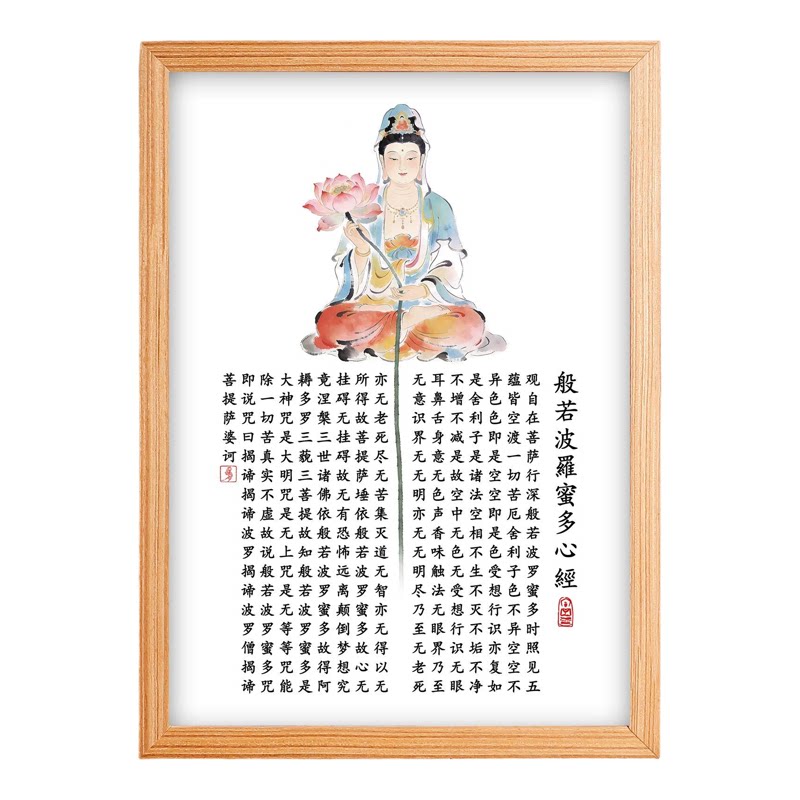 般若波羅蜜多心經
观自在菩萨行深般若波罗蜜多时照见五
蕴皆空渡一切苦厄舍利子色不异空空不
异色色即是空空即是色受想行识亦复如
是舍利子是诸法空相不生不灭不垢不净
不增不减是故空中无色无受想行识无眼
耳鼻舌身意无色声香味触法无眼界乃至
无意识界无无明亦无无明尽乃至无老死
亦无老死尽无苦集灭道无智亦无得以无
所得故菩提萨埵依般若波罗蜜多故心无
挂碍无挂碍故无有恐怖远离颠倒梦想究
竟涅槃三世诸佛依般若波罗蜜多故得阿
耨多罗三藐三菩提故知般若波罗蜜多是
大神咒是大明咒是无上咒是无等等咒能
除一切苦真实不虚故说般若波罗蜜多咒
即说咒曰揭谛揭谛波罗揭谛波罗僧揭谛
菩提萨婆诃